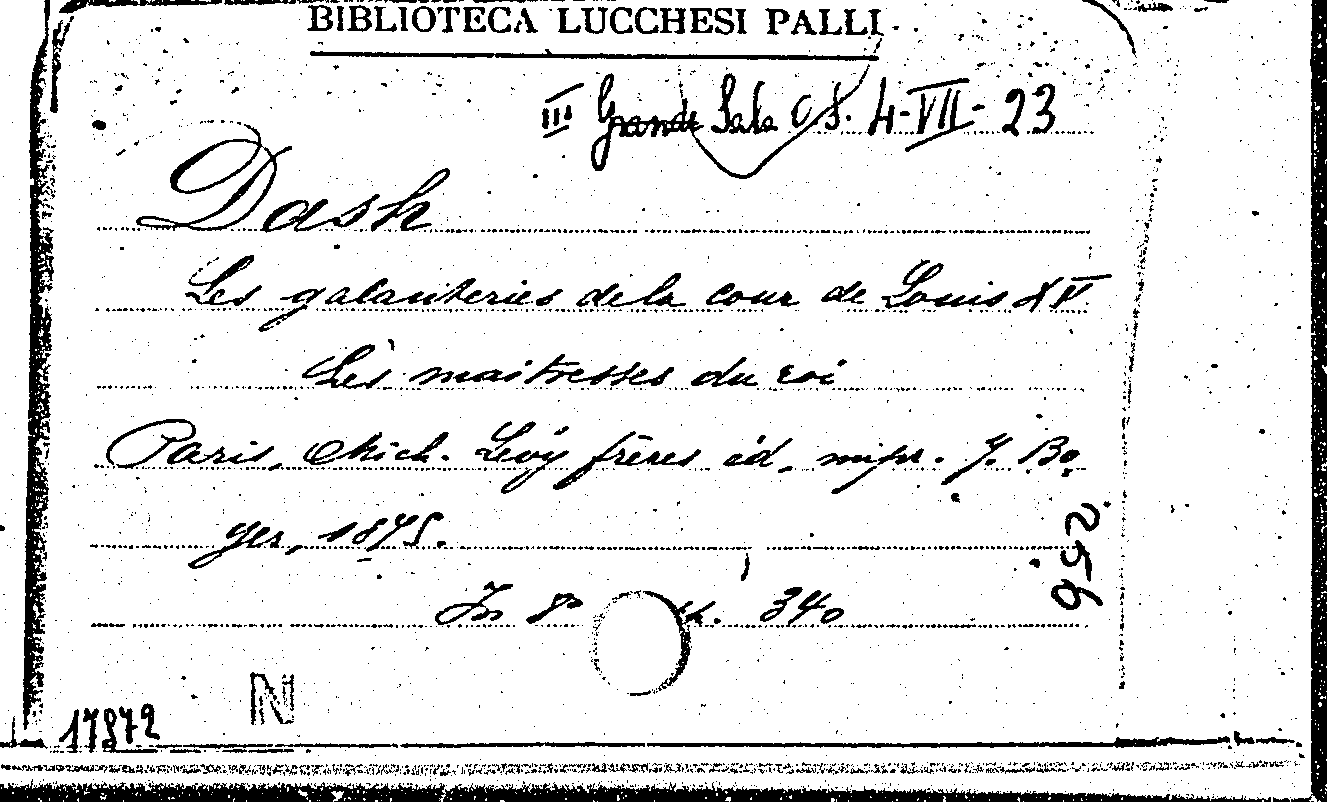 BIBLIOTECA LUCCHESI PALLI
III Grande Sala C S. 4-VII-23
Dash
Les galanteries de la cour de Louis XV
Les maitresses du roi
Paris, Mich. Lévy frères éd, impr. J. Bo
yer, 1875.
In 8° 340
256
N
17872